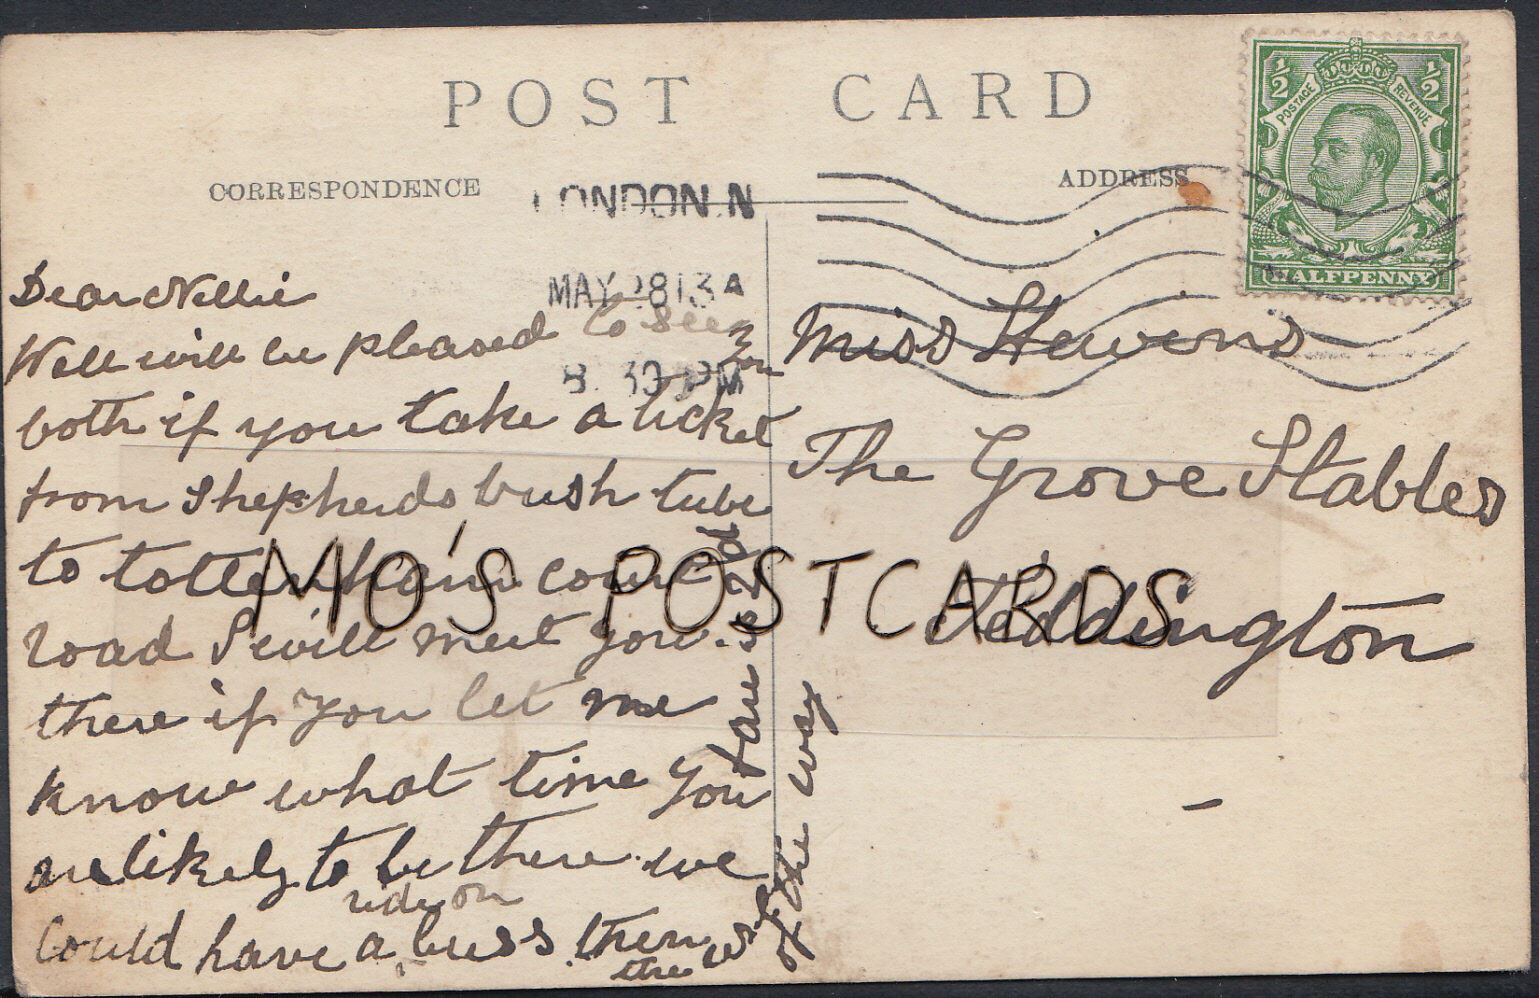 POST CARD
CORRESPONDENCE
ADDRESS
LONDON. N
MAY 28 13 A
8. 30 PM
½ ½
POSTAGE REVENUE
HALFPENNY
Dear Nellie
Well will be pleased to see
you
both if you take a ticket
from Shepherds bush tube
to tottenham court
road I will meet you.
there if you let me
know what time you
are likely to be there. we
ride on
could have a buss then
the
of the way
fare is 2d
Miss Stevens
The Grove Stables
Teddington
MO'S POSTCARDS